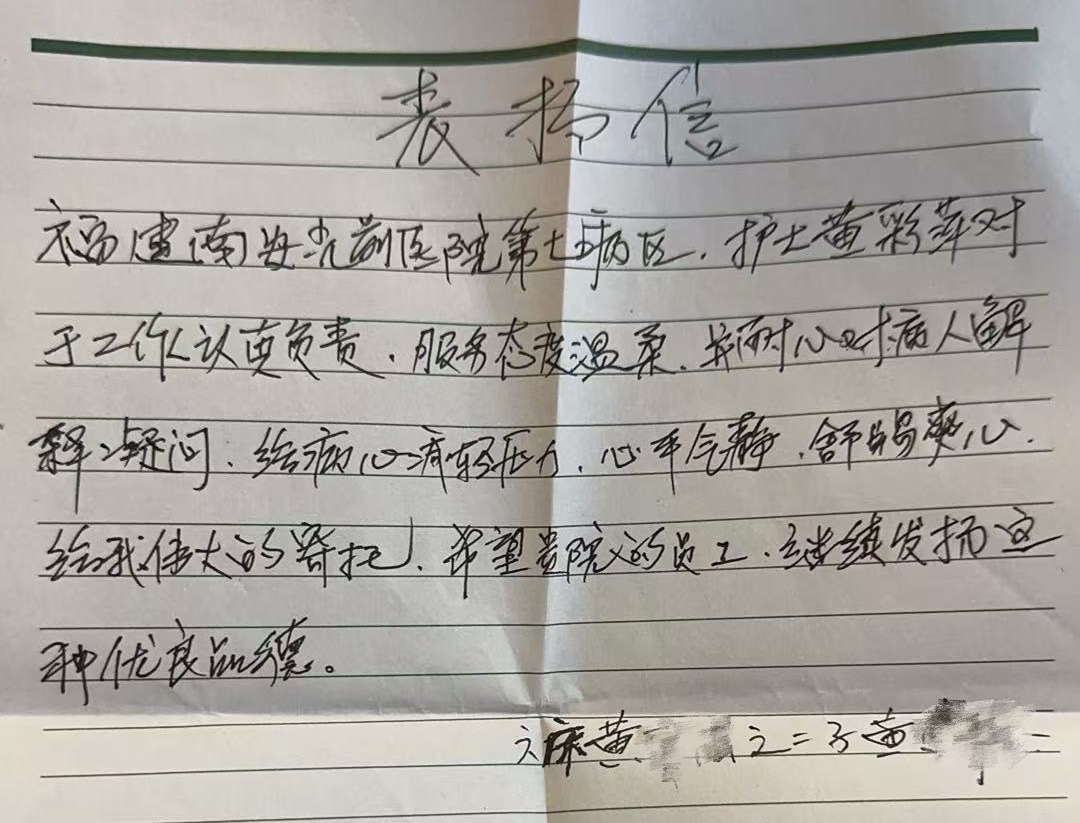 表扬信
福建南安光前医院第七病区，护士黄彩萍对
于工作认真负责，服务态度温柔，并耐心对病人解
释疑问，给病心病轻压力，心平气静，舒畅爽心，
给我伟大的寄托，希望贵院的员工，继续发扬这
种优良品德。
床黄 之二子黄